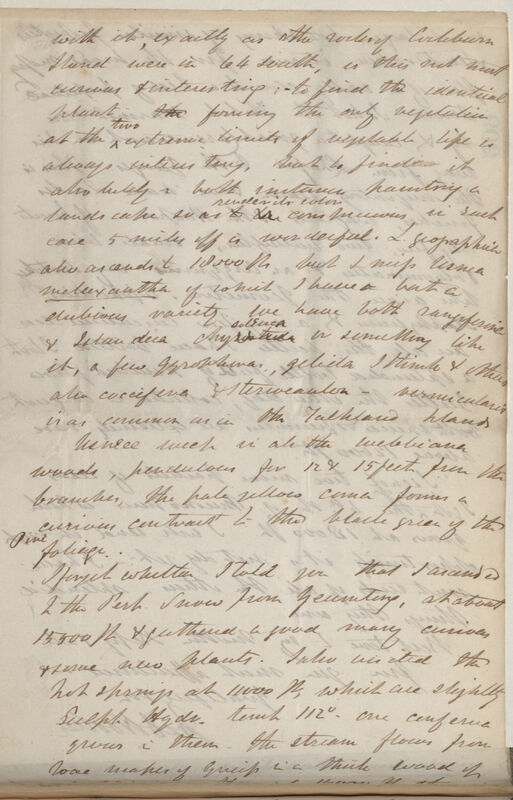 with it, exactly as the rocks of Cockburn
Island were in 64 South, is this not most
curious & interesting; to find the identical
plant the forming the only vegetation
at the two extreme limits of vegetable life is
always interesting, but to find it
absolutely in both instances painting a
landscape so as to render its color conspicuous, in each
case 5 miles off is wonderful. L. geographica
also ascends to 18,000 ft but I miss Usnea
melaxantha of which I have a but a
dubious variety. We have both rangiferina
& Islandica, or something like
it, a few gyrophoras, gelida I think & others
also coccifera & Stereocaulon — vermicularis
is as common as in the Falkland Islands
Usneae weep in all the webbiana
woods, pendulous for 12 & 15 feet from the
branches, the pale yellow coma forms a
curious contrast to the black green of the
Pine foliage.
I forget whether I told you that I ascended
to the Perp. Snow from Yeumtong, at about
15,500 ft & gathered a good many curious
& some new plants. I also visited the
hot springs at 11000 ft, which are slightly
Sulph. Hydr. temp 112°. one conferva
grows in them. the stream flows from
masses of Gneiss in a thick wood of